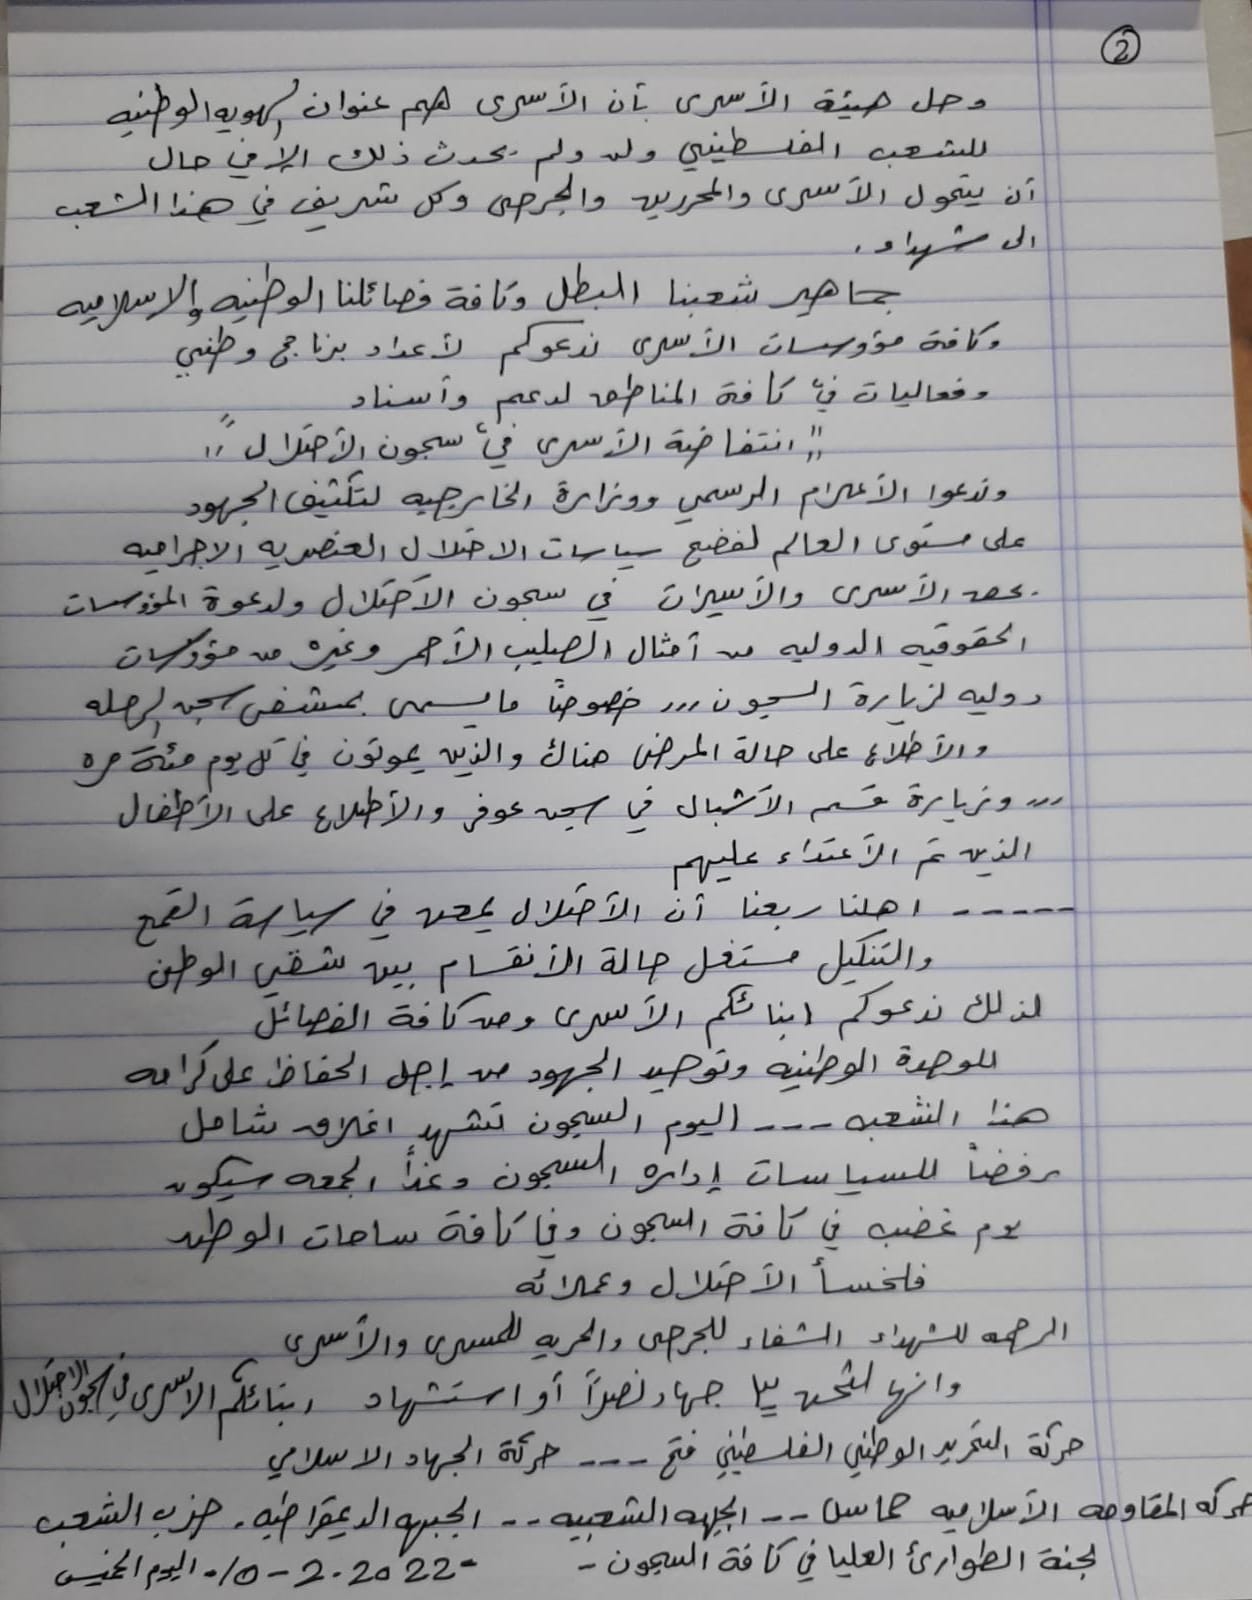 2
وحل هيئة الأسرى بأن الأسرى هم عنوان الهويه الوطنيه
للشعب الفلسطيني ولن ولم يحدث ذلك إلا في حال
أن يتحول الأسرى والمحررين والجرحى وكل شريف في هذا الشعب
الى شهداء.
جماهير شعبنا البطل وكافة فصائلنا الوطنيه والاسلاميه
وكافة مؤوسسات الأسرى ندعوكم لأعداد برنامج وطني
وفعاليات في كافة المناطق لدعم وأسناد
"انتفاضة الأسرى في سجون الأحتلال"
وندعوا الأعلام الرسمي ووزارة الخارجيه لتكثيف الجهود
على مستوى العالم لفضح سياسات الاحتلال العنصريه الاجراميه
بحق الأسرى والأسيرات في سجون الأحتلال ولدعوة المؤوسسات
الحقوقيه الدوليه من أمثال الصليب الأحمر وغيره من مؤوسسات
دوليه لزيارة السجون ... خصوصاً ما يسمى بمشفى سجن الرمله
والأطلاع على حالة المرضى هناك والذين يموتون في كل يوم مئة مره
... وزيارة قسم الأشبال في سجن عوفر والأطلاع على الأطفال
الذين تم الأعتداء عليهم
----- اهلنا ربعنا أن الأحتلال يمعن في سياسة القمع
والتنكيل مستغل حالة الأنقسام بين شقي الوطن
لذلك ندعوكم ابنائكم الأسرى ومن كافة الفصائل
للوحدة الوطنيه وتوحيد الجهود من إجل الحفاظ على كرامه
هذا الشعب --- اليوم السجون تشهد اغلاق شامل
رفضاً للسياسات إداره السجون وغداً الجمعه سيكون
يوم غضب في كافة السجون وفي كافة ساحات الوطن
فلخسأ الأحتلال وعملائه
الرحمه للشهداء الشفاء للجرحى والحريه للمسرى والأسرى
وانها جهاد نصراً أو استشهاد ابنائكم الاسرى في سجون الاحتلال
حركة التحرير الوطني الفلسطيني فتح --- حركة الجهاد الاسلامي
حركه المقاومه الأسلاميه حماس -- الجبهه الشعبيه -- الجبهه الديمقراطيه. حزب الشعب
لجنة الطوارئ العليا في كافة السجون - -2022-2-10. اليوم الخميس